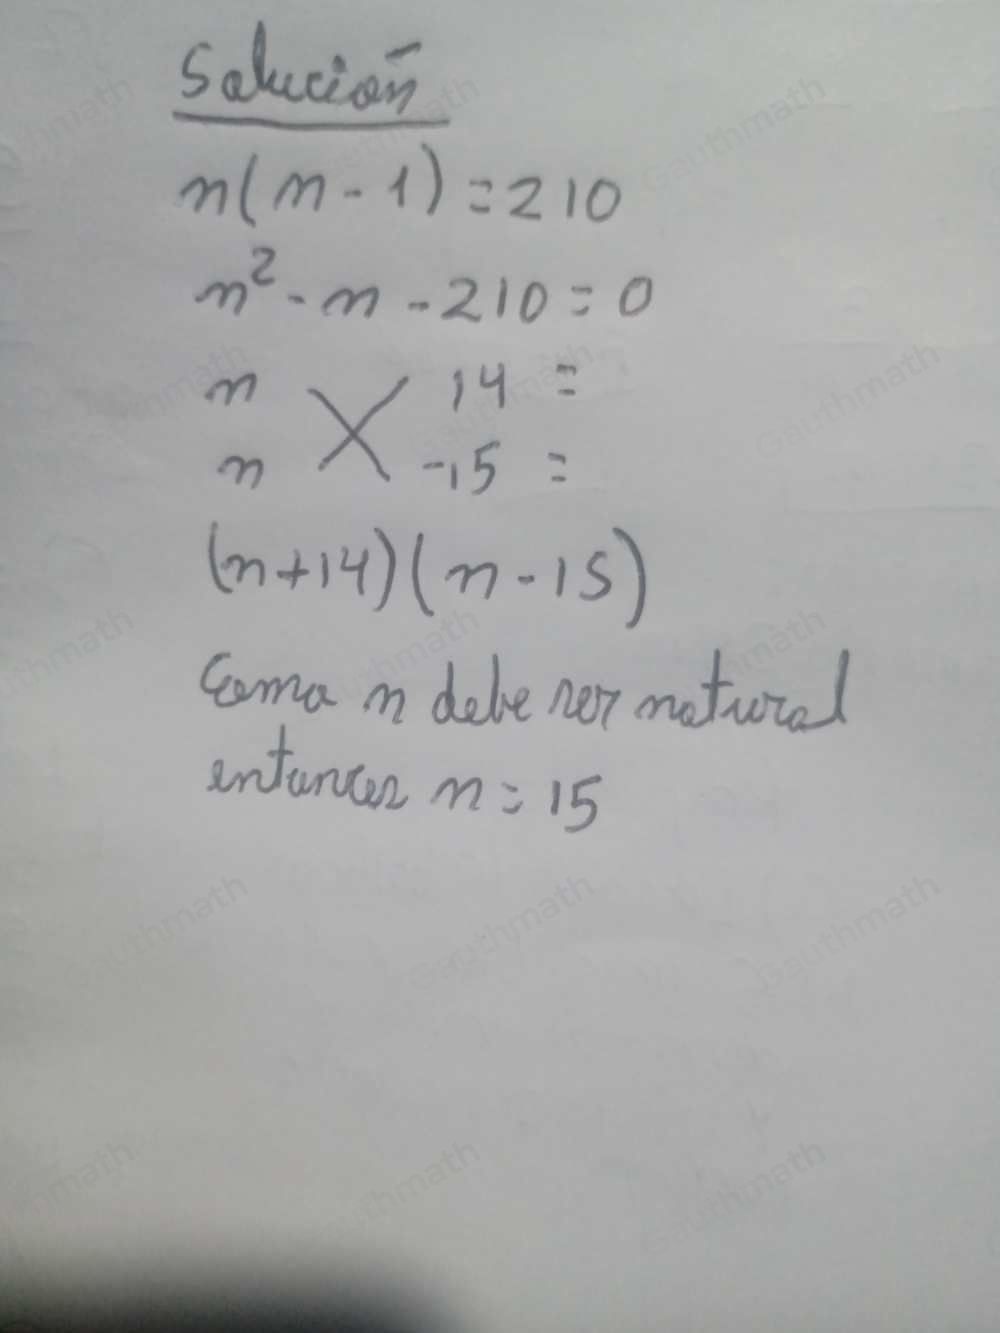 Solución
n(n-1)=210
n²-n-210=0
n 14 =
n -15 =
(n+14)(n-15)
Como n debe ser natural
entonces n=15